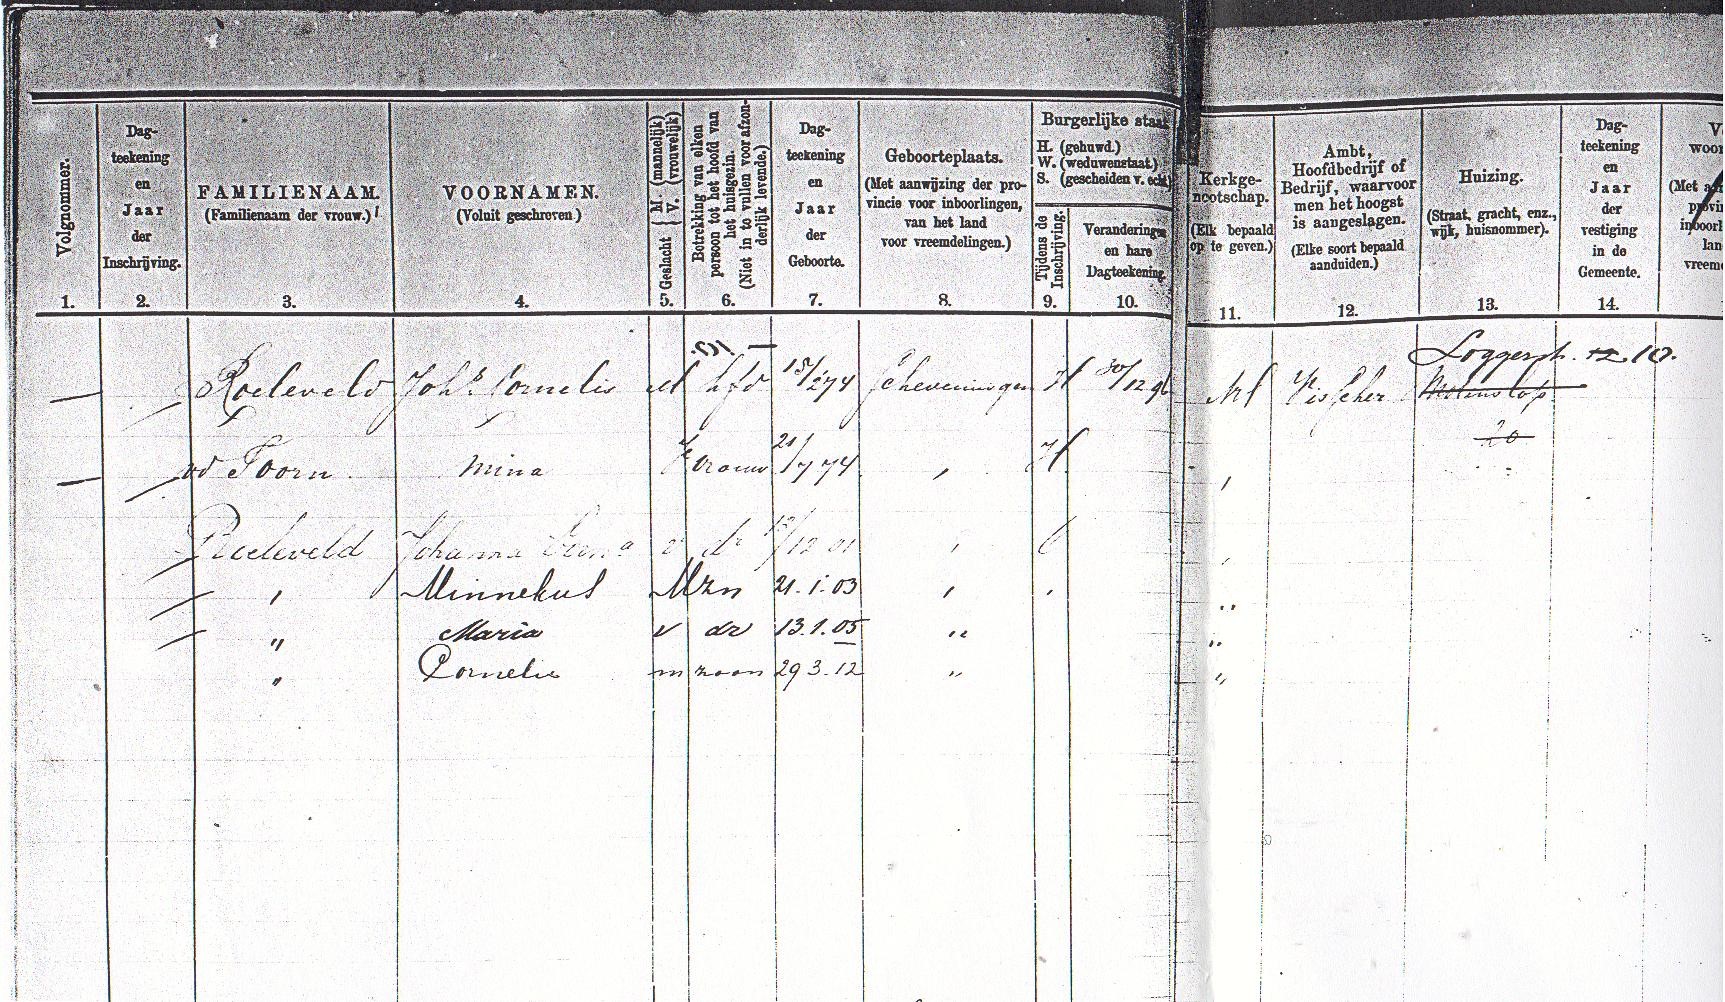 Volgnommer.
1.
Dag-
teekening
en
Jaar
der
Inschrijving.
2.
FAMILIENAAM.
(Familienaam der vrouw.)
3.
VOORNAMEN.
(Voluit geschreven.)
4.
Geslacht { M. (mannelijk) V. (vrouwelijk)
5.
Betrekking van elken
persoon tot het hoofd van
het huisgezin.
(Niet in te vullen voor afzon-
derlijk levende.)
6.
Dag-
teekening
en
Jaar
der
Geboorte.
7.
Geboorteplaats.
(Met aanwijzing der pro-
vincie voor inboorlingen,
van het land
voor vreemdelingen.)
8.
Burgerlijke staat
H. (gehuwd.)
W. (weduwenstaat.)
S. (gescheiden v. echt)
Tijdens de
Inschrijving.
9.
Veranderingen
en hare
Dagteekening.
10.
Kerkge-
nootschap.
(Elk bepaald
op te geven.)
11.
Ambt,
Hoofdbedrijf of
Bedrijf, waarvoor
men het hoogst
is aangeslagen.
(Elke soort bepaald
aanduiden.)
12.
Huizing.
(Straat, gracht, enz.,
wijk, huisnommer).
13.
Dag-
teekening
en
Jaar
der
vestiging
in de
Gemeente.
14.
V
woon
(Met
provin
inboorl
lan
vreem
Loggerstr. 12 10.
Roeleveld Johs Cornelis M hfd 15/2 74 Scheveningen H 30/12 96 NH Visscher Molenslop
20
vd Toorn Mina V vrouw 21/7 74 " H "
Roeleveld Johanna v dr /12 01 " O "
" Minnekus M zn 21.1.03 " " "
" Maria v dr 13.1.05 " "
" Cornelis m zoon 29 3.12 " "